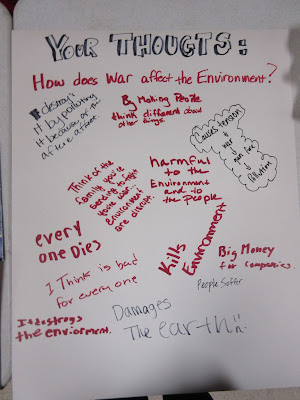 YOUR THOUGTS:
How does War affect the Environment?
It destroy's
it by polluting
it because of the
By Making People
think different about
other things.
Causes tension
war
pollution
Think of the
family you're
sending to fight
you're war...
Environment
are disrupt.
harmful to
the
Environment
and to
the People
every
one Dies
Kills
Environment
Big Money
for companies.
I Think is bad
For every one
People Suffer
It destroys
the enviorment.
Damages
The earth